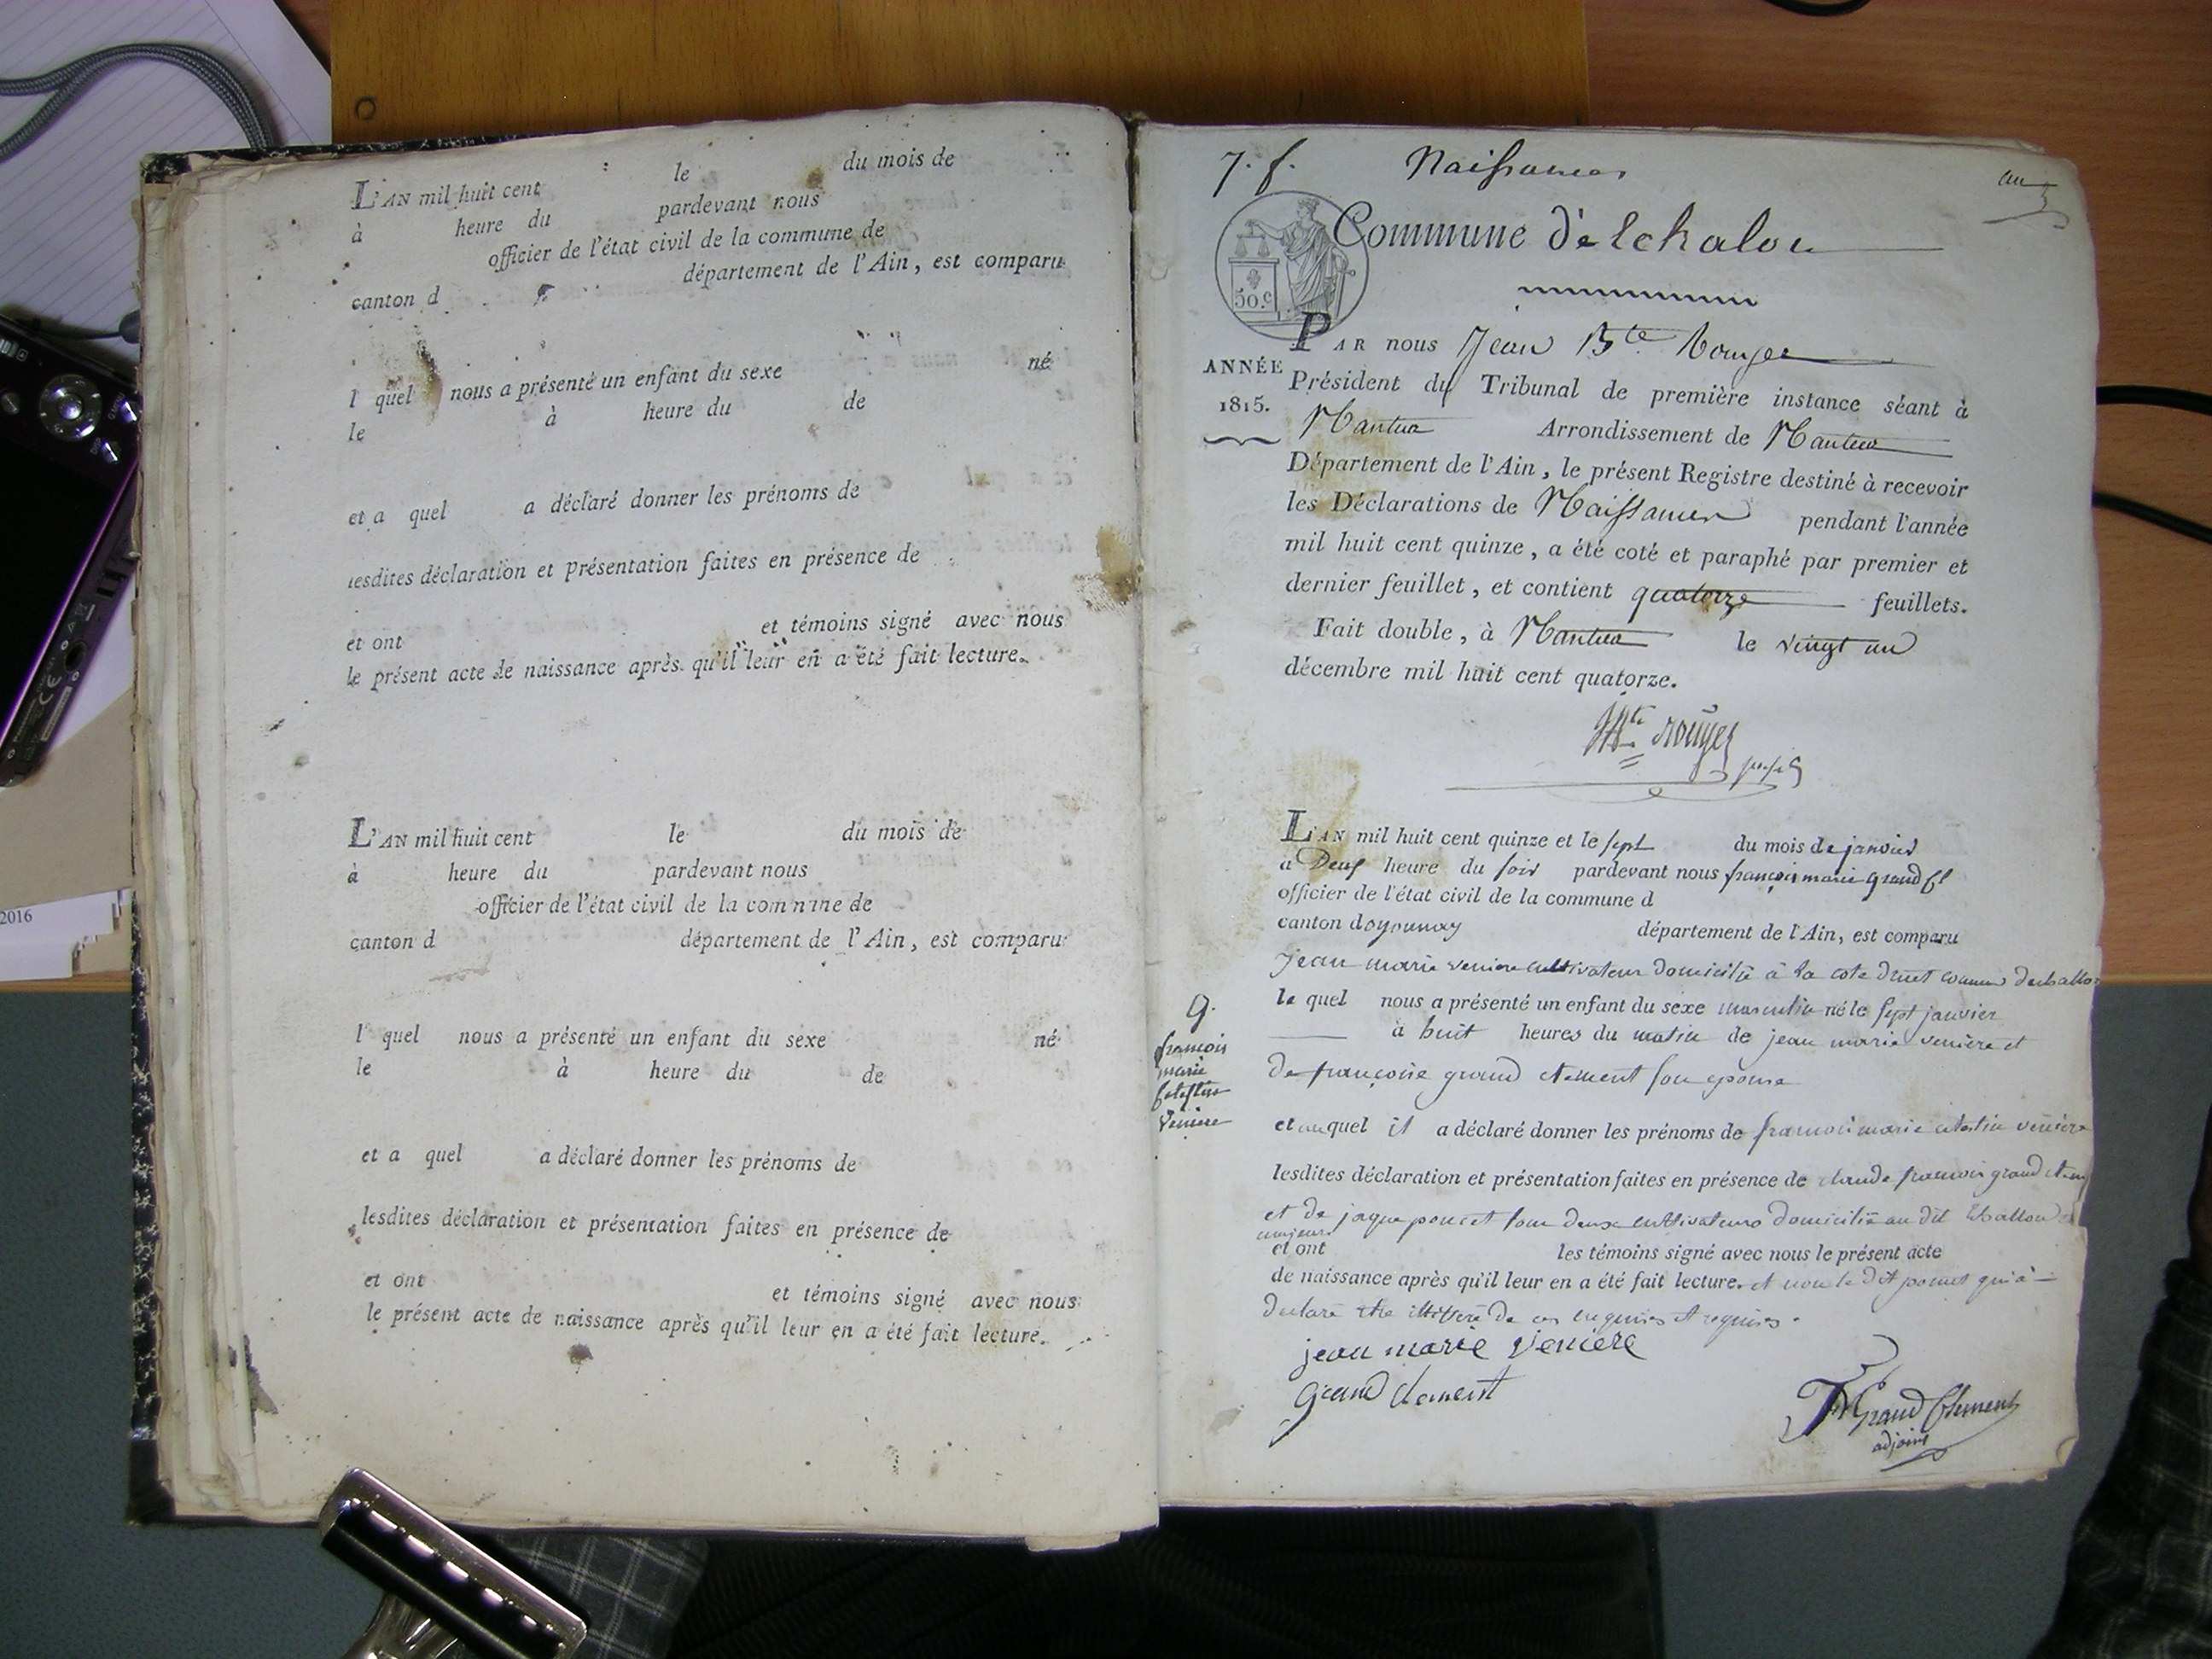 L'AN mil huit cent le du mois de
à heure du pardevant nous
officier de l'état civil de la commune de
canton d département de l'Ain, est comparu
l quel nous a présenté un enfant du sexe né
le à heure du de
et a quel a déclaré donner les prénoms de
lesdites déclaration et présentation faites en présence de
et ont et témoins signé avec nous
le présent acte de naissance après qu'il leur en a été fait lecture.
L'AN mil huit cent le du mois de
à heure du pardevant nous
officier de l'état civil de la commune de
canton d département de l'Ain, est comparu
l quel nous a présenté un enfant du sexe né
le à heure du de
et a quel a déclaré donner les prénoms de
lesdites déclaration et présentation faites en présence de
et ont et témoins signé avec nous
le présent acte de naissance après qu'il leur en a été fait lecture.
2016
7. f. Naissances
un
Commune d'Echalou
50.c
PAR nous Jean Bte Rouyer
ANNÉE
1815.
Président du Tribunal de première instance séant à
Nantua Arrondissement de Nantua
Département de l'Ain, le présent Registre destiné à recevoir
les Déclarations de Naissances pendant l'année
mil huit cent quinze, a été coté et paraphé par premier et
dernier feuillet, et contient quatorze feuillets.
Fait double, à Nantua le vingt un
décembre mil huit cent quatorze.
rouyer
L'AN mil huit cent quinze et le sept du mois de janvier
a Deux heure du soir pardevant nous françois marie grand Cl
officier de l'état civil de la commune d
canton doyounay département de l'Ain, est comparu
jean marie veniere cultivateur domicilié à la cote commune dechallo
le quel nous a présenté un enfant du sexe masculin né le sept janvier
à huit heures du matin de jean marie veniere et
9.
françois
marie
Celestin
Veniere
de françoise grand clement son epouse
et auquel il a déclaré donner les prénoms de francois marie celestin veniere
lesdites déclaration et présentation faites en présence de claude francois grand clem
et de jaque poncet tous deux cultivateurs domicilié au dit Echallou
majeurs
et ont les témoins signé avec nous le présent acte
de naissance après qu'il leur en a été fait lecture. et non le dit poncet qui à
declaré etre illitéré de ce enquis et requis.
jean marie veniere
grand clement
FM Grand Clement
adjoint